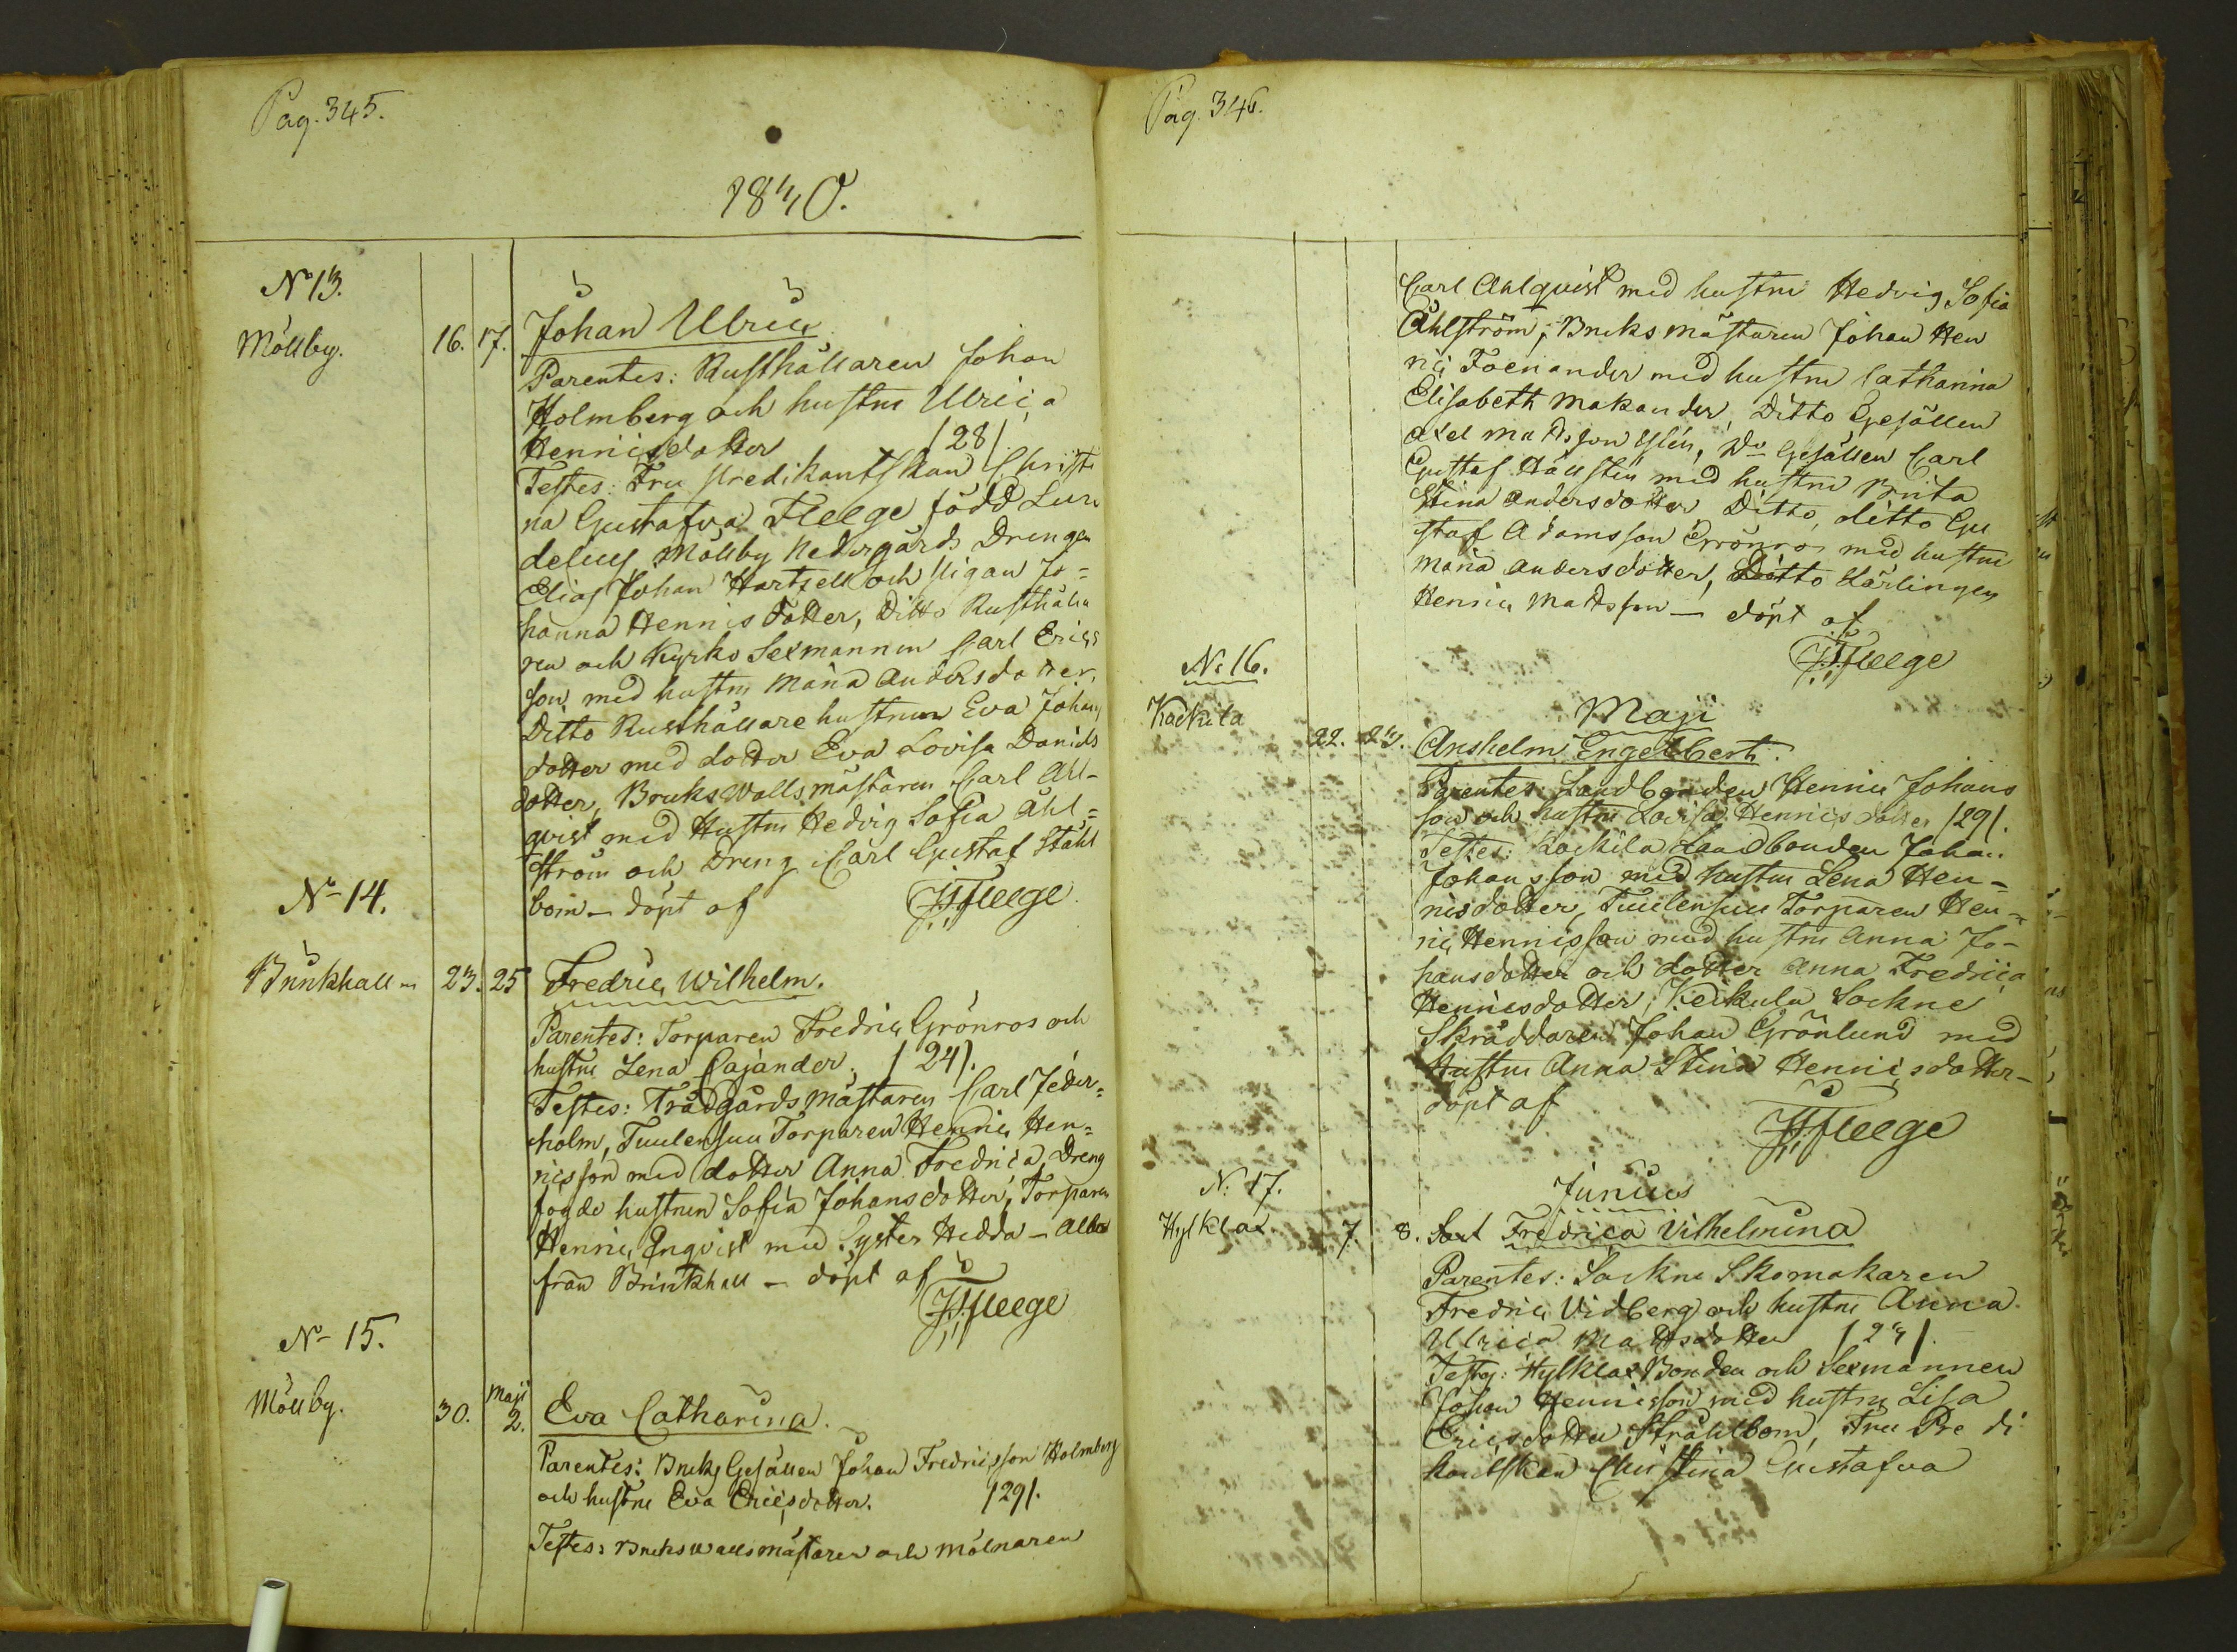 Pag. 345.
1840.
No 13.
Mällby. 16. 17. Johan Ulric
Parentes: Rusthållaren Johan
Holmberg och hustru Ulrica
Henricsdotter /28/.
Testes: Fru Predikantskan Christi
na Gustafva Fleege född Lun
delius, Mällby Nedergårds Drengen
Elias Johan Hartzell och Pigan Jo=
hanna Henricsdotter, Ditto Rusthålla
ren och Kyrko Sexmannen Carl Erics
son med hustru Maria Andersdotter,
Ditto Rusthållare hustrun Eva Johans
dotter med dotter Eva Lovisa Daniels
dotter, Bruks Wallsmästaren Carl All-
qvist med Hustru Hedvig Sofia Åhl=
ström och Dreng Carl Gustaf Ståhl
bom - döpt af JJFleege
No 14.
Brinkhall 23. 25 Fredric Wilhelm.
Parentes: Torparen Fredric Grönros och
hustru Lena Cajander. /24/.
Testes: Trädgårds Mästaren Carl Feder=
holm, Tuulensuu Torparen Henric Hen=
ricsson med dotter Anna Fredrica, Dreng
fogde hustrun Sofia Johansdotter, Torparen
Henric Enqvist med Syster Hedda - alla
från Brinkhall - döpt af
JJFleege
No 15.
Mällby. 30. Maji 2. Eva Catharina.
Parentes: Bruks Gesällen Johan Fredricsson Holmberg
och hustru Eva Ericsdotter. /29/.
Testes: Brukswallsmästaren och Mölnaren
Pag. 346.
Carl Ahlqvist med hustru Hedvig Sofia
Åhlström, Bruksmästaren Johan Hen
ric Foenander med hustru Catharina
Elisabeth Makander, Ditto Gesällen
Axel Mattsson, Do Gesällen Carl
Gustaf Hällsten med hustru Brita
Stina Andersdotter Ditto, ditto Gu
staf Adamsson Grönros med hustru
Maria Andersdotter, Ditto Lärlingen
Henric Mattsson - döpt af
JJFleege
No 16.
Maji
Kackila 22. 23. Anshelm Engelbert.
Parentes: Landbonden Henric Johans
son och hustru Lovisa Henricsdotter /29/.
Testes: Kackila Landbonden Johan
Johansson med hustru Lena Hen=
ricsdotter, Tuulensuu Torparen Hen=
ric Henricsson med hustru Anna Jo-
hansdotter och dotter Anna Fredrica
Henricsdotter, Keikula Sockne
Skräddaren Johan Grönlund med
Hustru Anna Stina Henricsdotter -
döpt af
JJFleege
No 17.
Junius
Hylklax 7 8. Fredrica Vilhelmina
Parentes: Sockne Skomakaren
Fredric Vidberg och hustru Anna
Ulrica Mattsdotter /24/.
Testes: Hylklax Bonden och Sexmannen
Johan Henricsson med hustru Lisa
Ericsdotter Stråhlbom, Fru Predi
kantskan Christina Gustafva